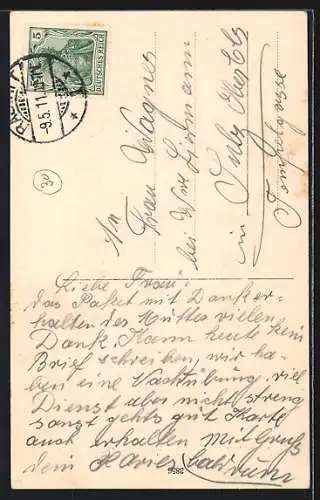 5
DEUTSCHES REICH
-9.5.11
30
An
Frau Wagner
bei Wwe
in Sulz
Tempelgasse
Liebe Frau!
das Paket mit Dank er-
halten des Muttes vielen
Dank, Kann heute kein
Brief schreiben, wir ha-
ben eine Nachtübung, viel
Dienst aber nicht streng
sonst gehts gut Karte
auch erhalten mit Gruß
dein